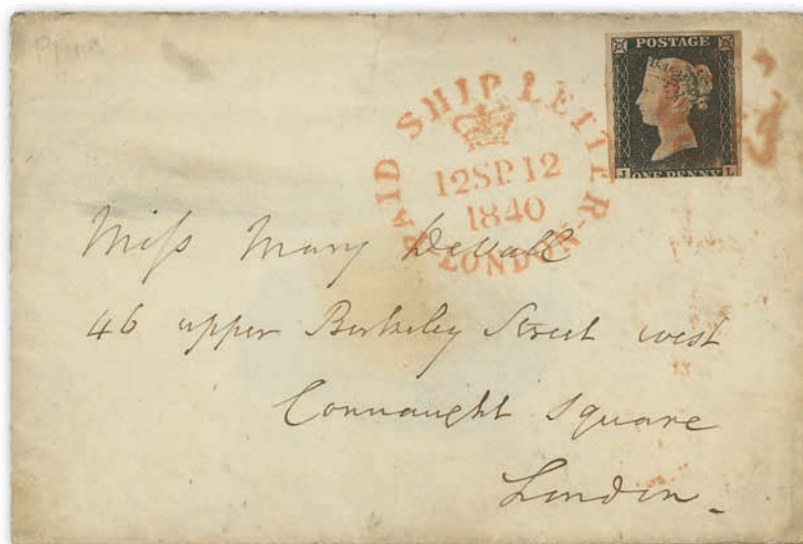 POSTAGE
J ONE PENNY L
PAID SHIP LETTER
12SP12
1840
LONDON
Miſs Mary DeVall
46 upper Berkeley Street west
Connaught Square
London.